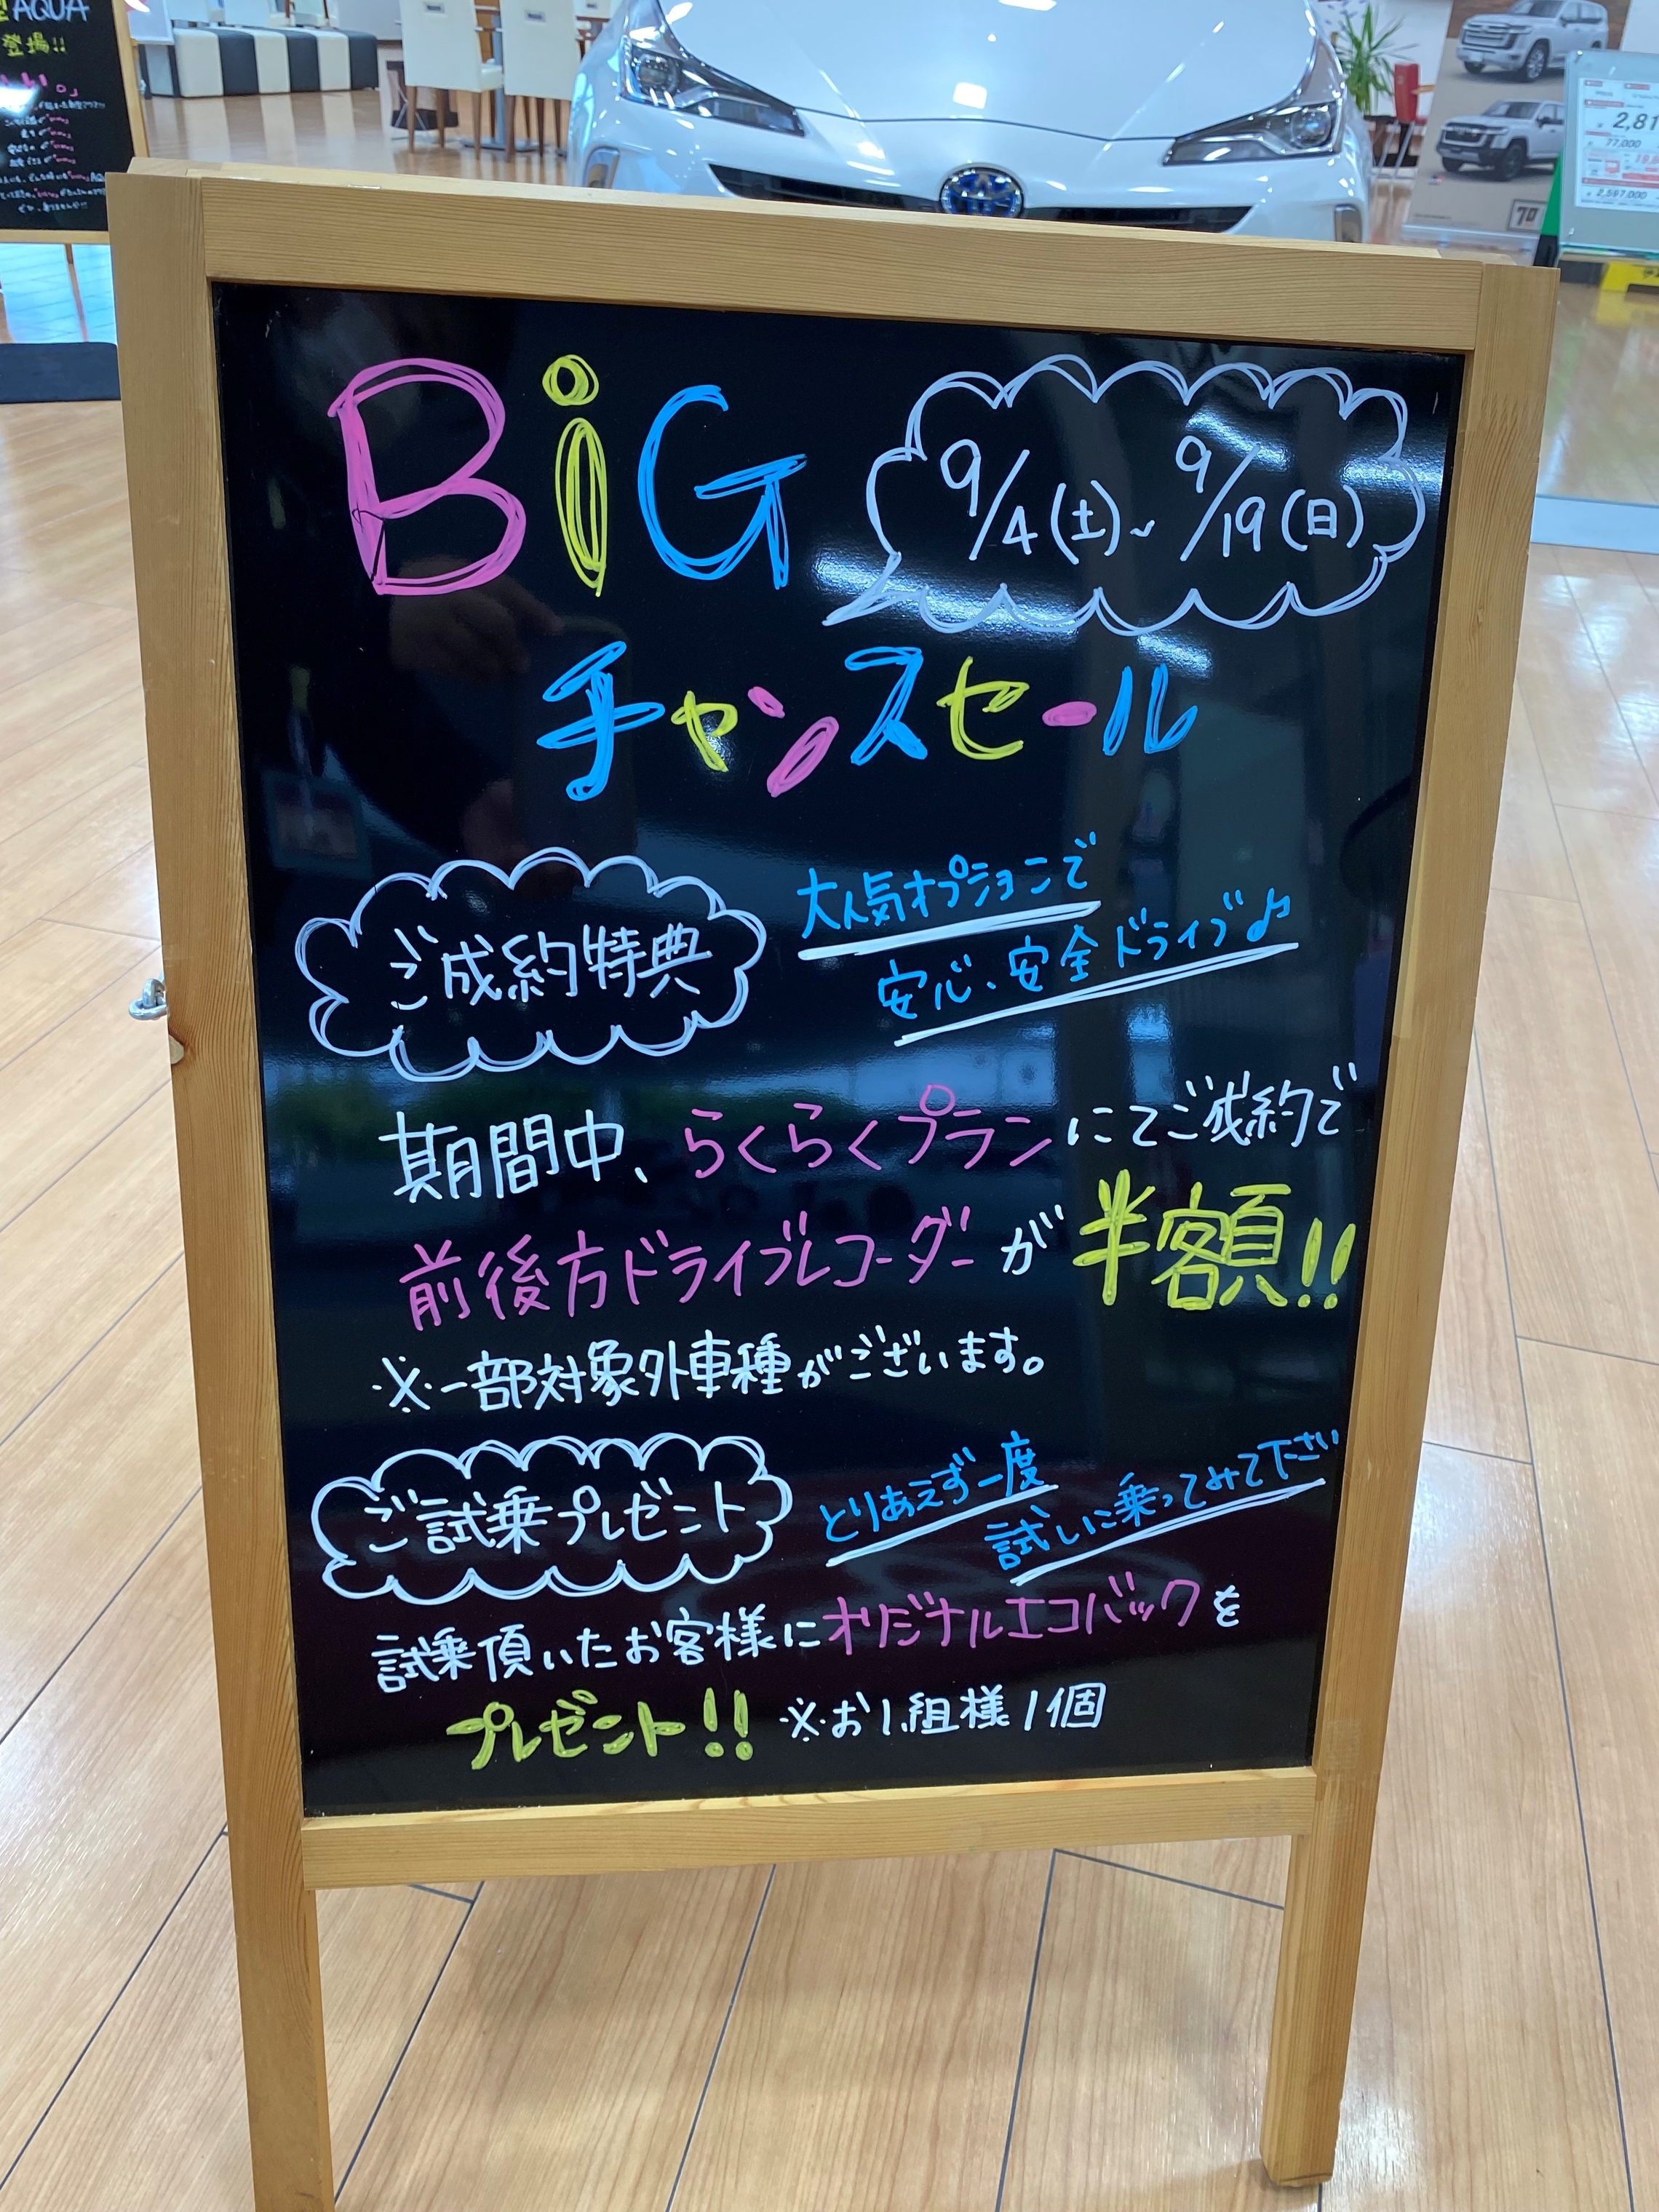 BiG
9/4(土)~9/19(日)
チャンスセール
ご成約特典
大人気オプションで
安心、安全ドライブ♪
期間中、らくらくプランにてご成約で
前後方ドライブレコーダーが半額!!
※一部対象外車種がございます。
ご試乗プレゼント
とりあえず一度
試しに乗ってみて下さい
試乗頂いたお客様にオリジナルエコバックを
プレゼント!! ※お1組様1個
AQUA
登場!!
2,81
77,000
2,597,000
70